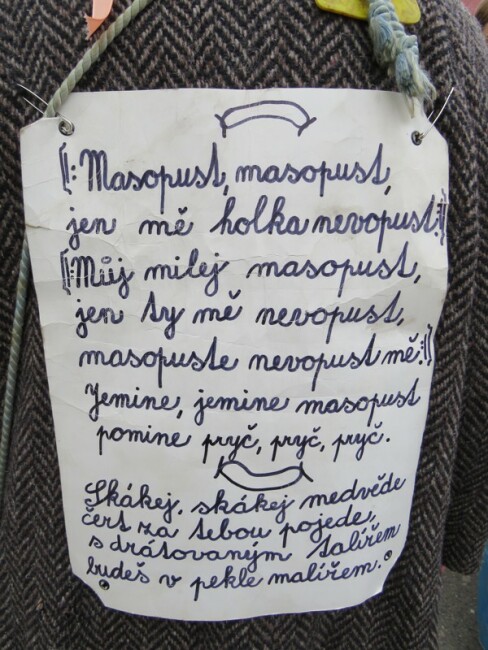 𝄆: Masopust, masopust,
jen mě holka nevopust:𝄇
𝄆:Můj milej masopust,
jen ty mě nevopust,
masopuste nevopust mě:𝄇
Jemine, jemine masopust
pomine pryč, pryč, pryč.
Skákej, skákej medvěde
čert za tebou pojede,
s drátovaným talířem
budeš v pekle malířem.